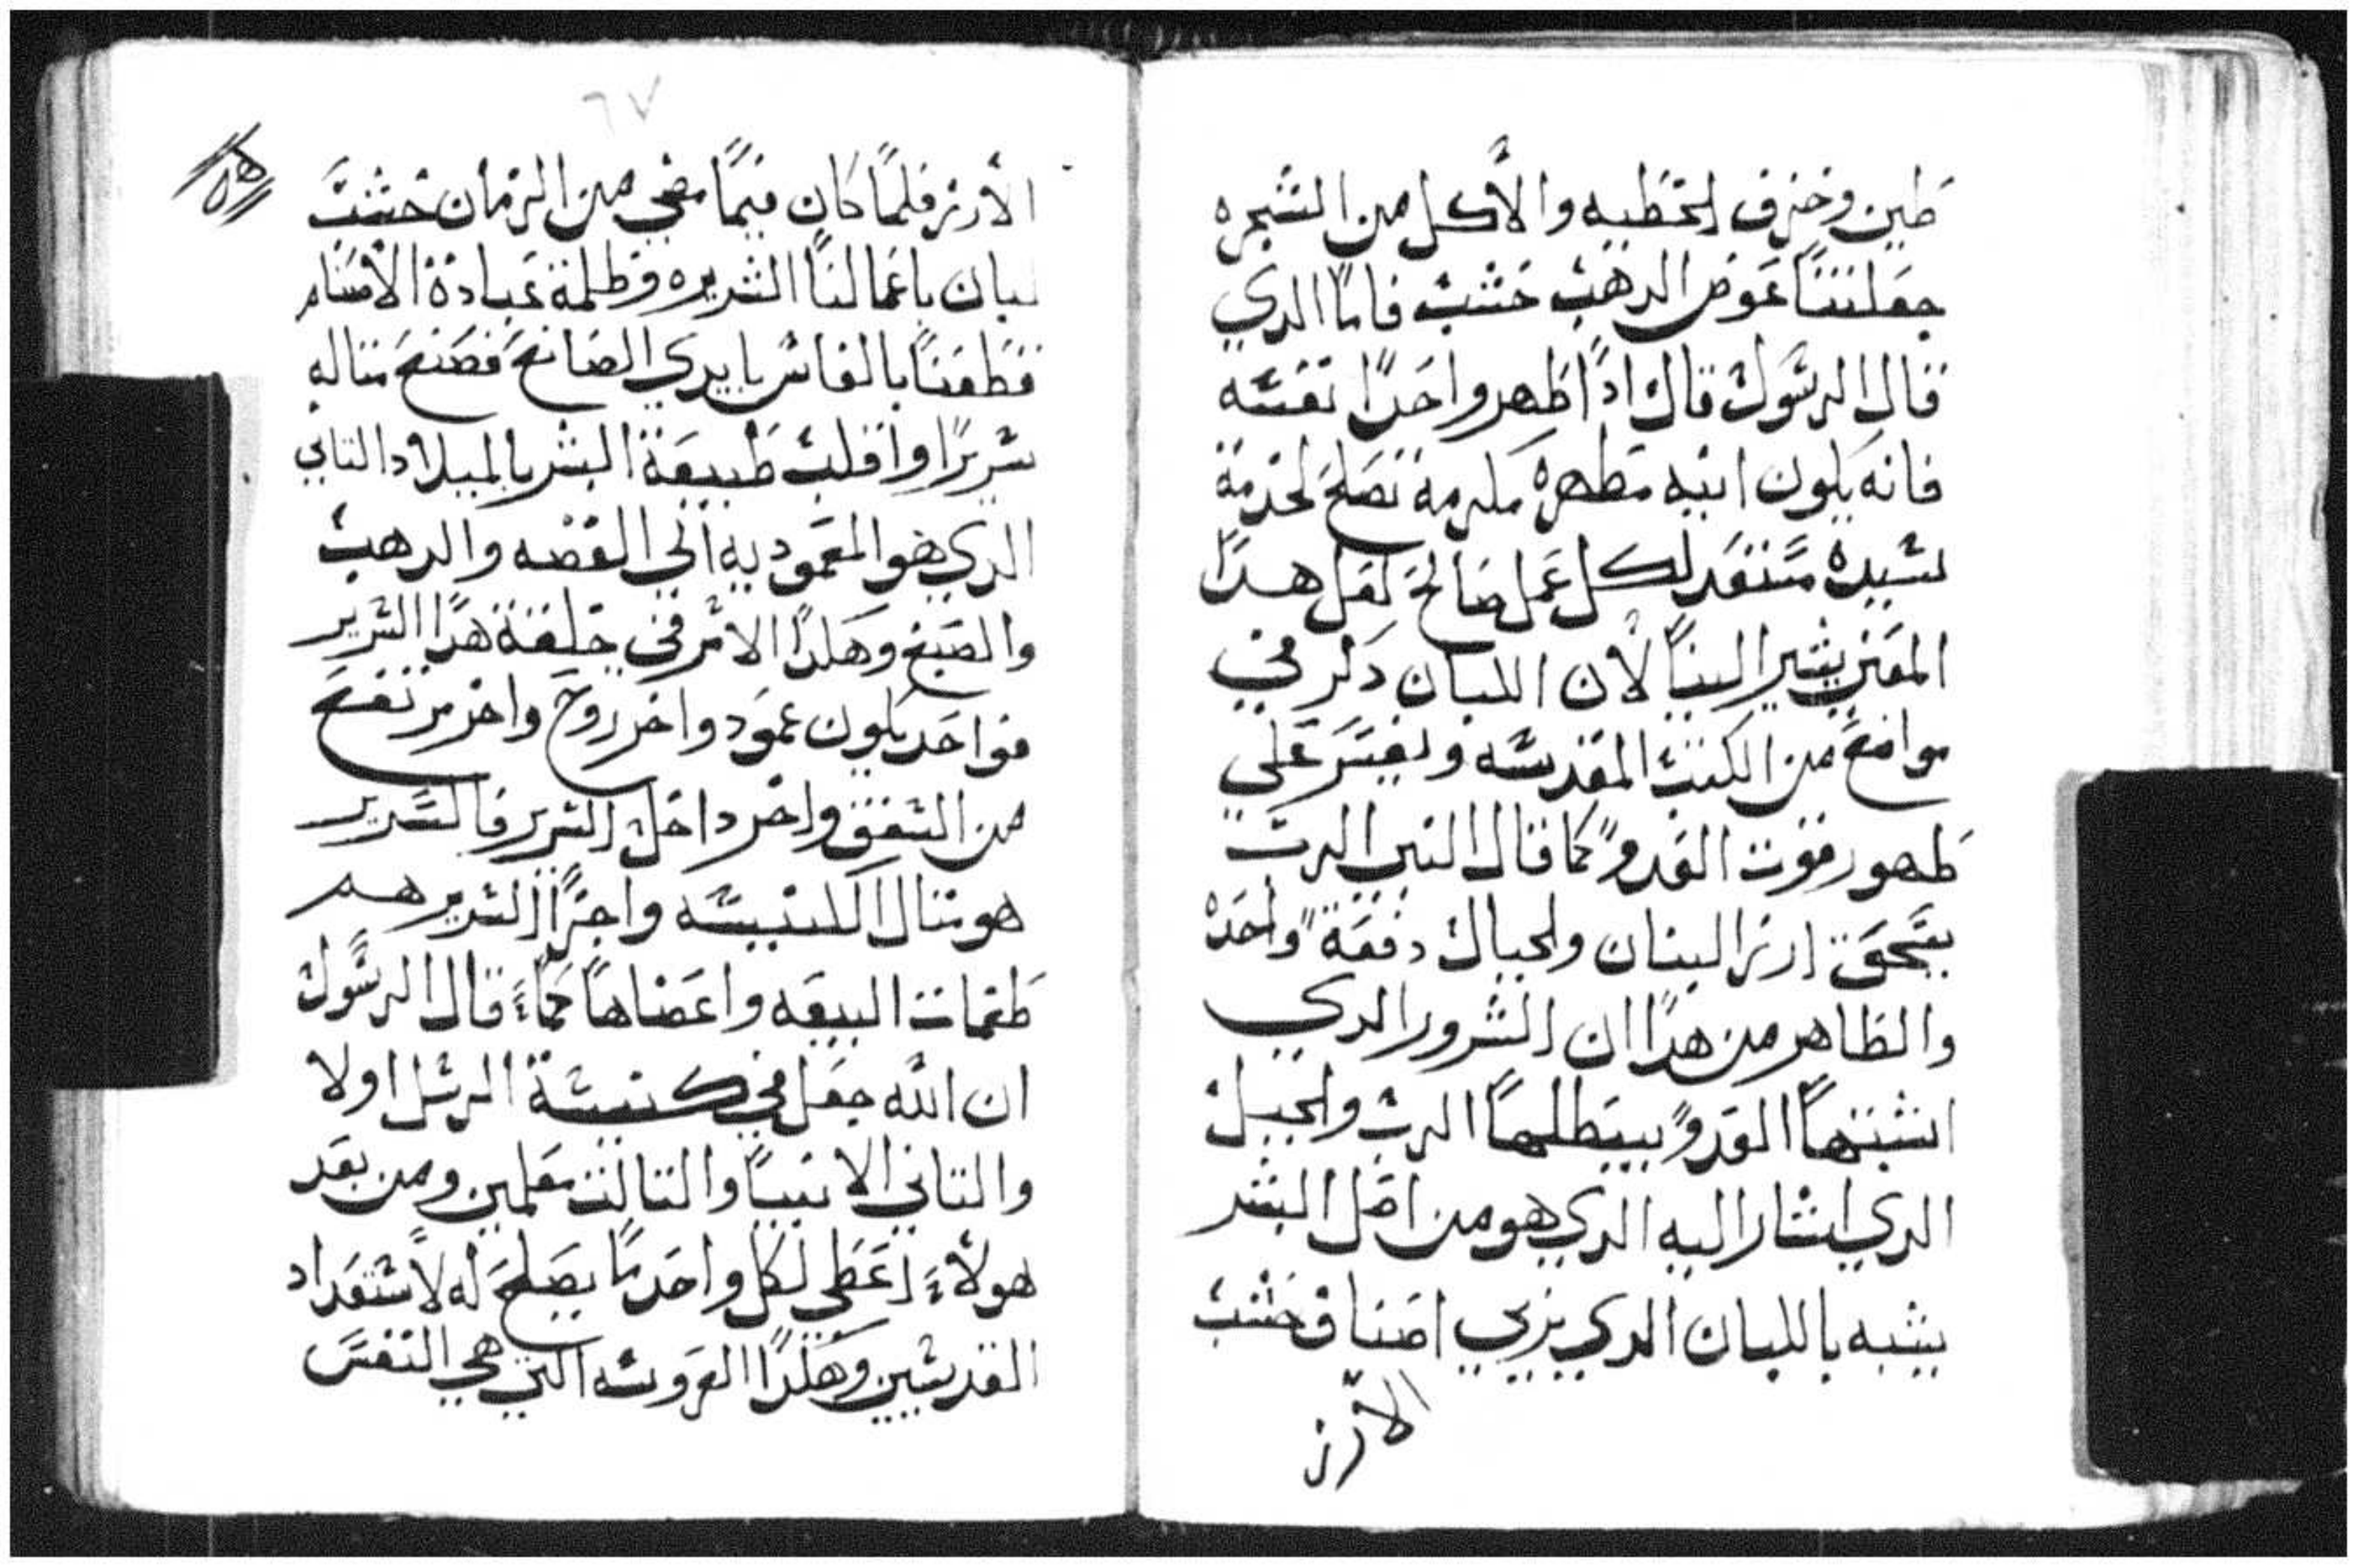 طين وخزف لخطيه والأكل من الشجره
جعلتنا عوض الدهب خشب فاما الدي
قال الرسول قال ادا طهر واحدا نفسه
فانه يكون انيه مطهره مكرمة تصلح لخدمة
سيده مستعد لكل عمل صالح لعل هدا
المعني يشير الينا لأن اللبان دكر في
مواضع من الكتب المقدسه ويفسر علي
ظهور قوت العدو كما قال النبي الرب
يسحق ارز البنان ولجبال دفعة واحده
والظاهر من هدا ان الشرور الدي
انشبتها العدو يبطلها الرب ولجبل
الدي اشار اليه الدي هو من اصل البشر
يشبه باللبان الدي يزبي اصناف خشب
الأرز
٦٧
الأرز فلما كان فيما مضي من الزمان خشب
لبان باعمالنا الشريره وظلمة عبادة الأصنام
قطعنا بالفاس بايدي الصانع فصنع مناله
سريرا واقلب طبيعة البشر بالميلاد التاني
الدي هو المعموديه الي الفضه والدهب
والصبغ وهكدا الامر في خلقة هدا السرير
فواحد يكون عمود واخر روح واخر مرتفع
من السقف واخر داخل السرير فالسرير
هو متال الكنيسه واجزا السرير هم
طغمات البيعه واعضاها كماء قال الرسول
ان الله جعل في كنيسة الرسل اولا
والتاني الانبيا والتالت معلمين ومن بعد
هولاء اعطي لكل واحد ما يصلح له لاستعداد
القديسين وهكدا العروسه التي هي النفس